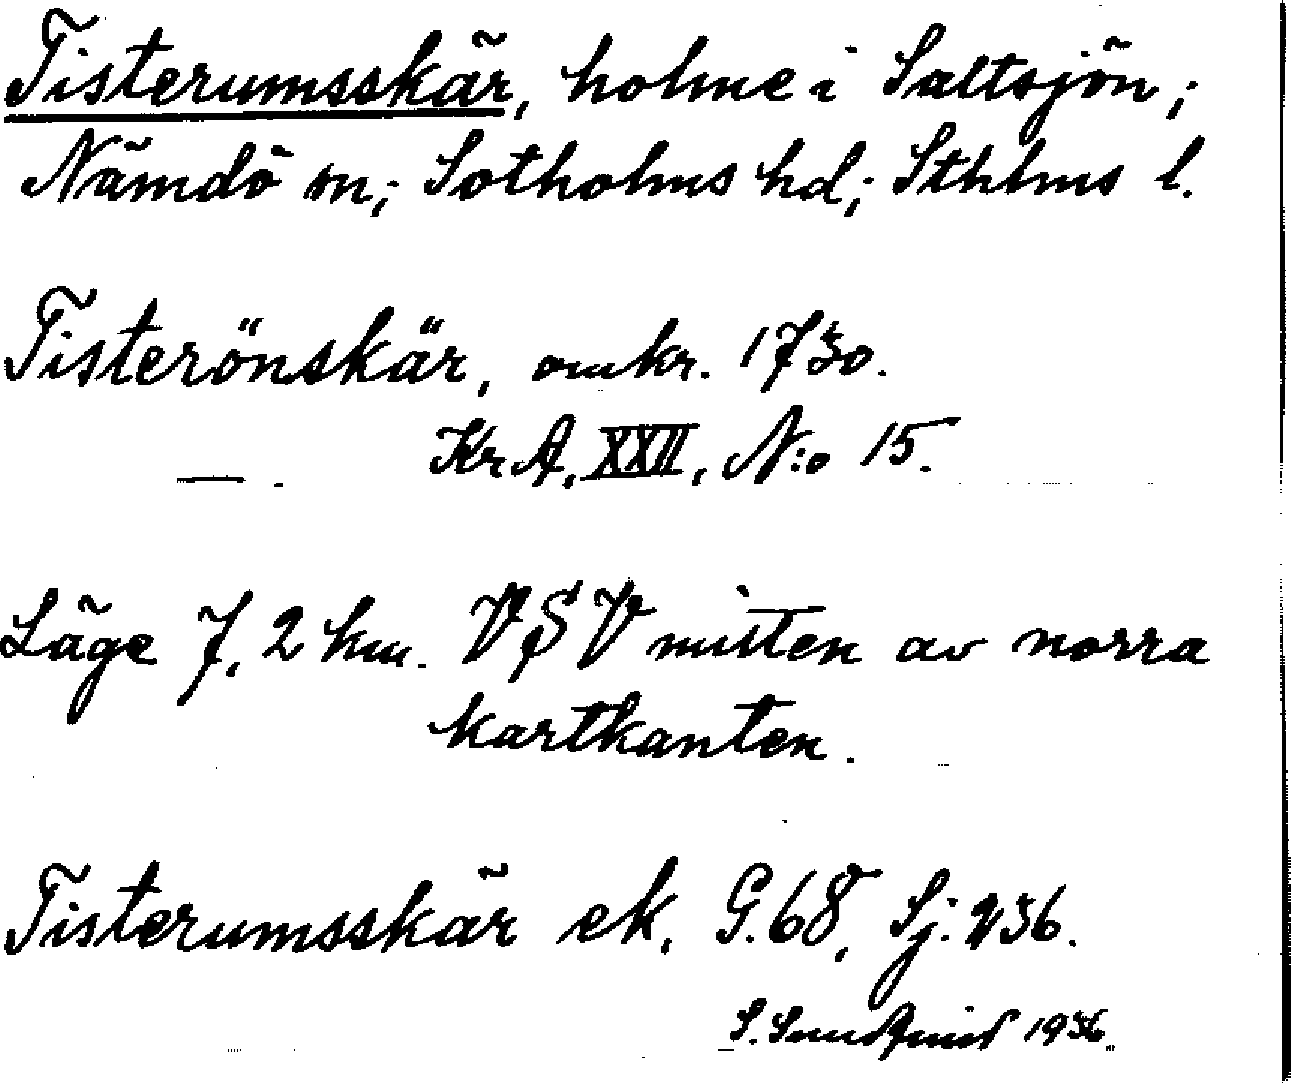 Tisterumsskär, holme i Saltsjön;
Nämdö sn; Sotholms hd; Sthlms l.
Tisterönskär, omkr. 1730.
KrA, XXII, N:o 15.
— .
Läge 7,2 km. VSV mitten av norra
kartkanten.
Tisterumsskär ek, G.68, Sj: 236.
S. Sundqvist 1936